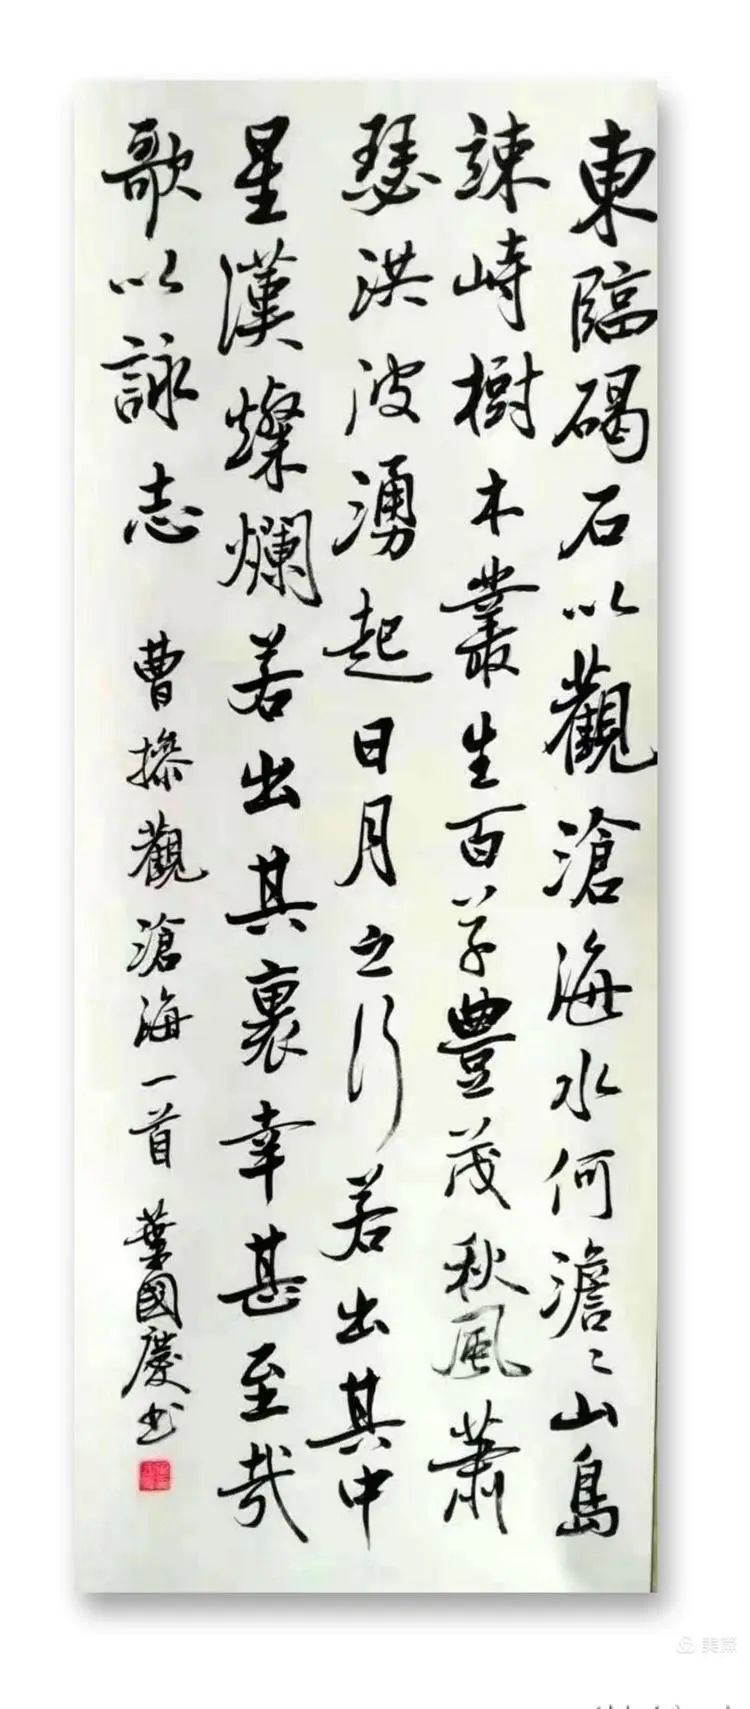 東臨碣石以觀滄海水何澹〻山島
竦峙樹木叢生百草豐茂秋風蕭
瑟洪波湧起日月之行若出其中
星漢燦爛若出其裏幸甚至哉
歌以詠志 曹操觀滄海一首 葉國慶书
美篇